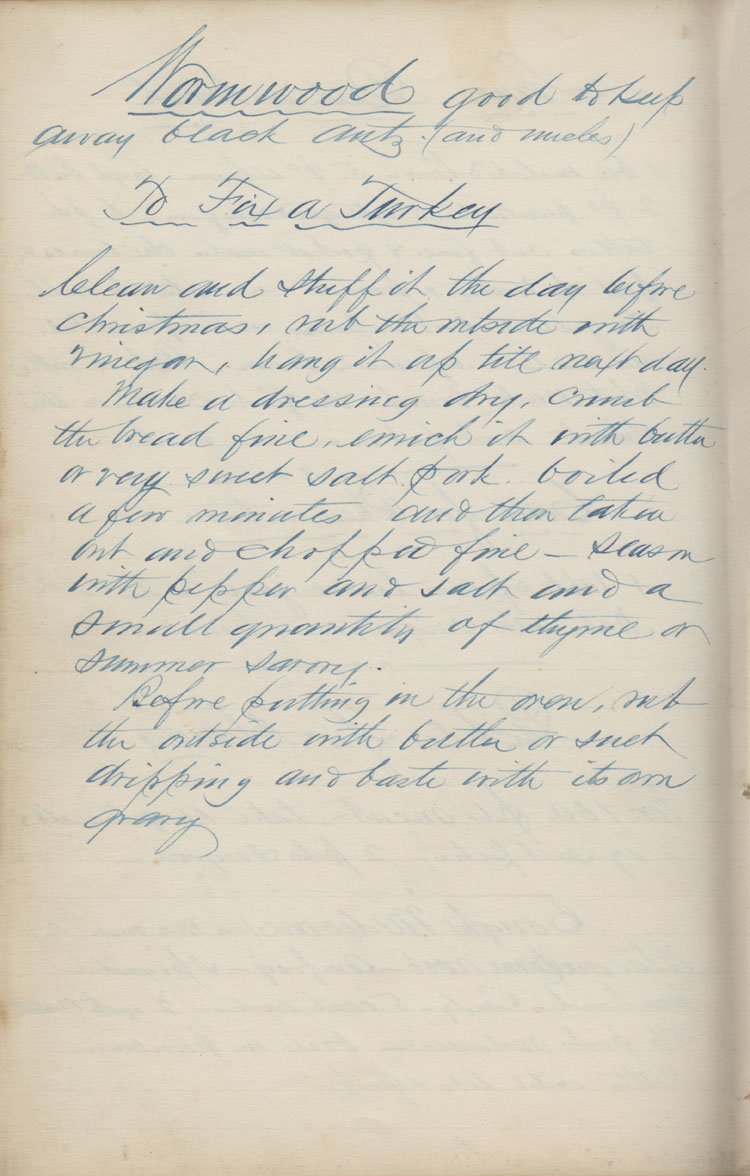 Wormwood good to keep
away black ants. (and uncles)
To Fix a Turkey
Clean and stuff it the day before
christmas, rub the outside with
vinegar, hang it up till next day.
Make a dressing dry, crumb
the bread fine, enrich it with butter
or very sweet salt pork boiled
a few minutes and then taken
out and chopped fine — season
with pepper and salt and a
small quantity of thyme or
summer savory.
Before putting in the oven, rub
the outside with butter or suet
dripping and baste with its own
gravy